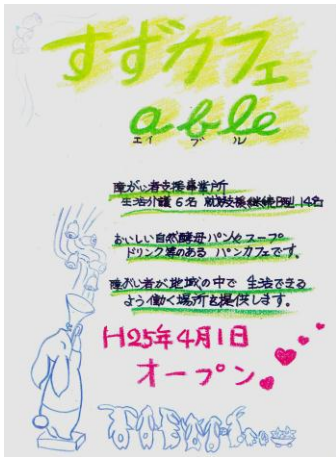 すずカフェ
able
エイブル
障がい者支援事業所
生活介護6名 就労支援継続B型14名
おいしい自然酵母パンとスープ
ドリンク等のある パンカフェです。
障がい者が地域の中で 生活できる
よう働く場所を提供します。
H25年4月1日
オープン